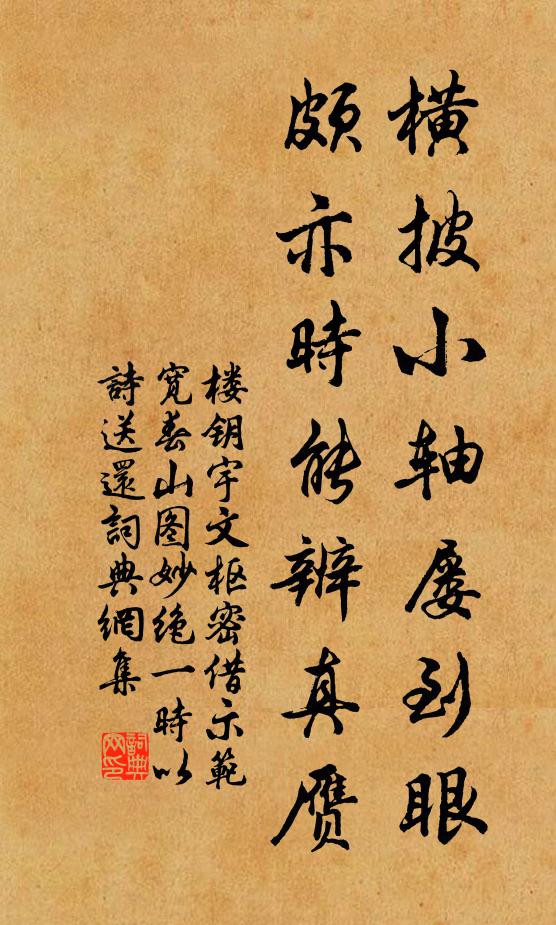 横披小轴屡到眼
颇亦時能辨真赝
楼钥宇文枢密借示範
宽春山图妙绝一時以
詩送還詞典網集
詞典網印